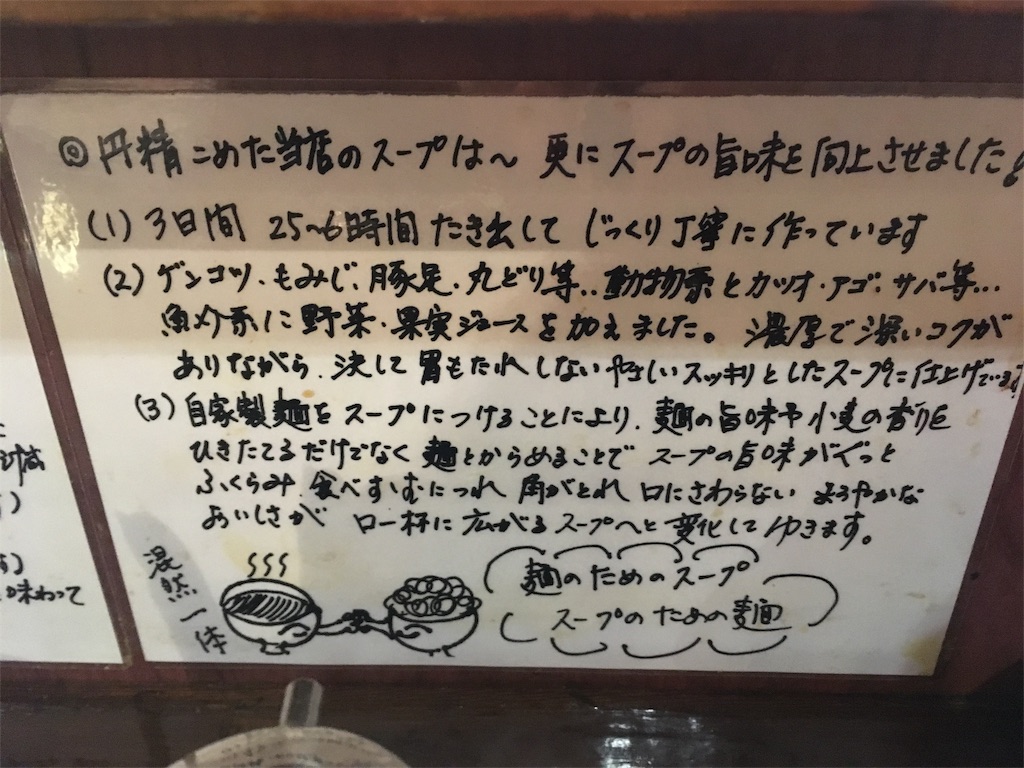 ◎円精こめた当店のスープは〜 更にスープの旨味を向上させました!
(1) 3日間 25〜6時間 たき出して じっくり丁寧に作っています
(2) ゲンコツ、もみじ、豚足、丸どり等..動物系とカツオ・アゴ・サバ等…
魚介系に野菜・果実ジュースを加えました。 濃厚で深いコクが
ありながら、決して胃もたれしないやさしいスッキリとしたスープに仕上げています
(3) 自家製麺をスープにつけることにより、麺の旨味や小麦の香りを
ひきたてるだけでなく 麺とからめることで スープの旨味がぐっと
ふくらみ、食べすゝむにつれ 角がとれ 口にさわらない まろやかな
おいしさが 口一杯に広がるスープへと変化してゆきます。
混然一体
麺のためのスープ
スープのための麺
味わって